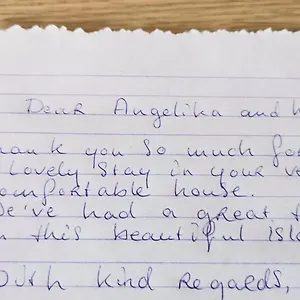 Dear Angelika and
hank you so much for
Lovely stay in your ve
omfortable house.
We've had a great t
n this beautiful isl
With kind regards,